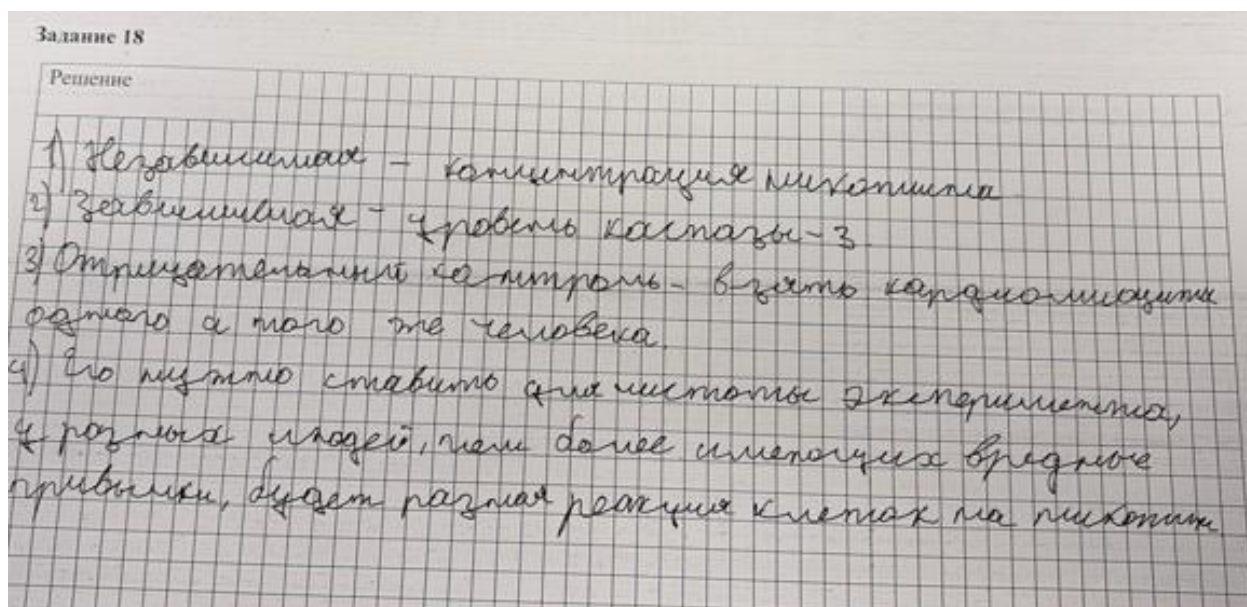 Задание 18
Решение
1) Независимая - концентрация никотина
2) Зависимая - уровень каспазы-3
3) Отрицательный контроль - взять кардиомиоциты
одного и того же человека.
4) Его нужно ставить для чистоты эксперимента,
у разных людей, тем более имеющих вредные
привычки, будет разная реакция клеток на никотин.